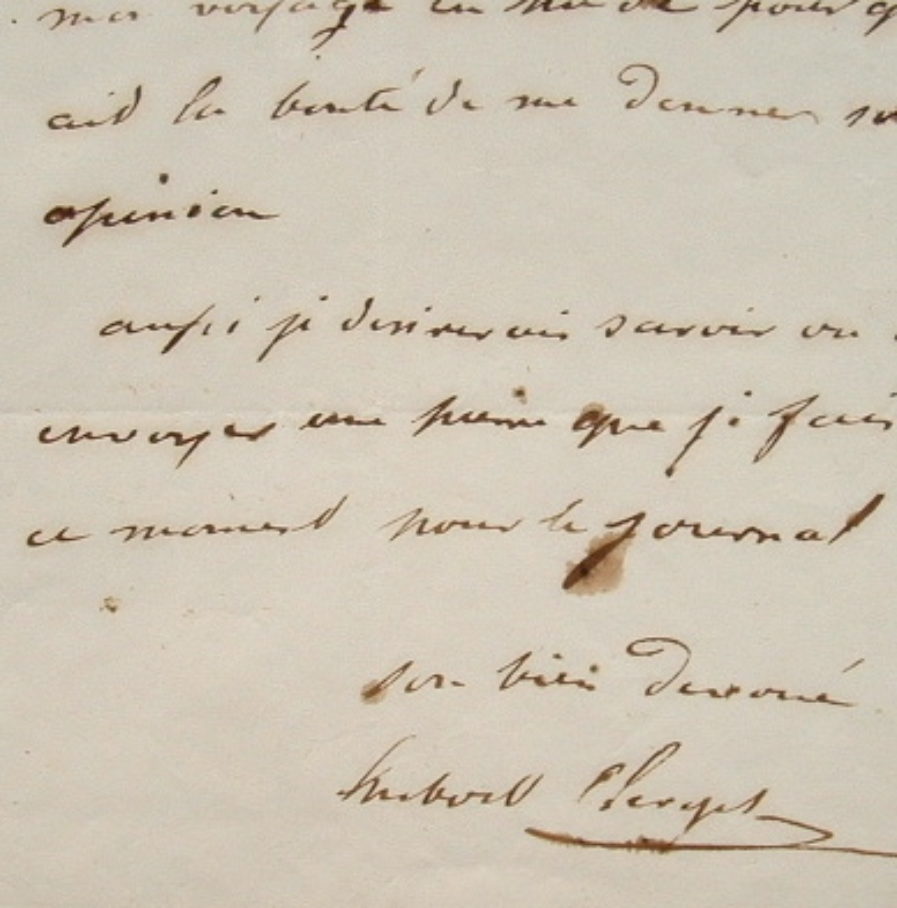 mon voyage en pour
ait la bonté de me donner
opinion
aussi je desirerais savoir ou
envoyer une pierre que je fais
ce moment pour le journal
son bien devoué
Hubert Clerget